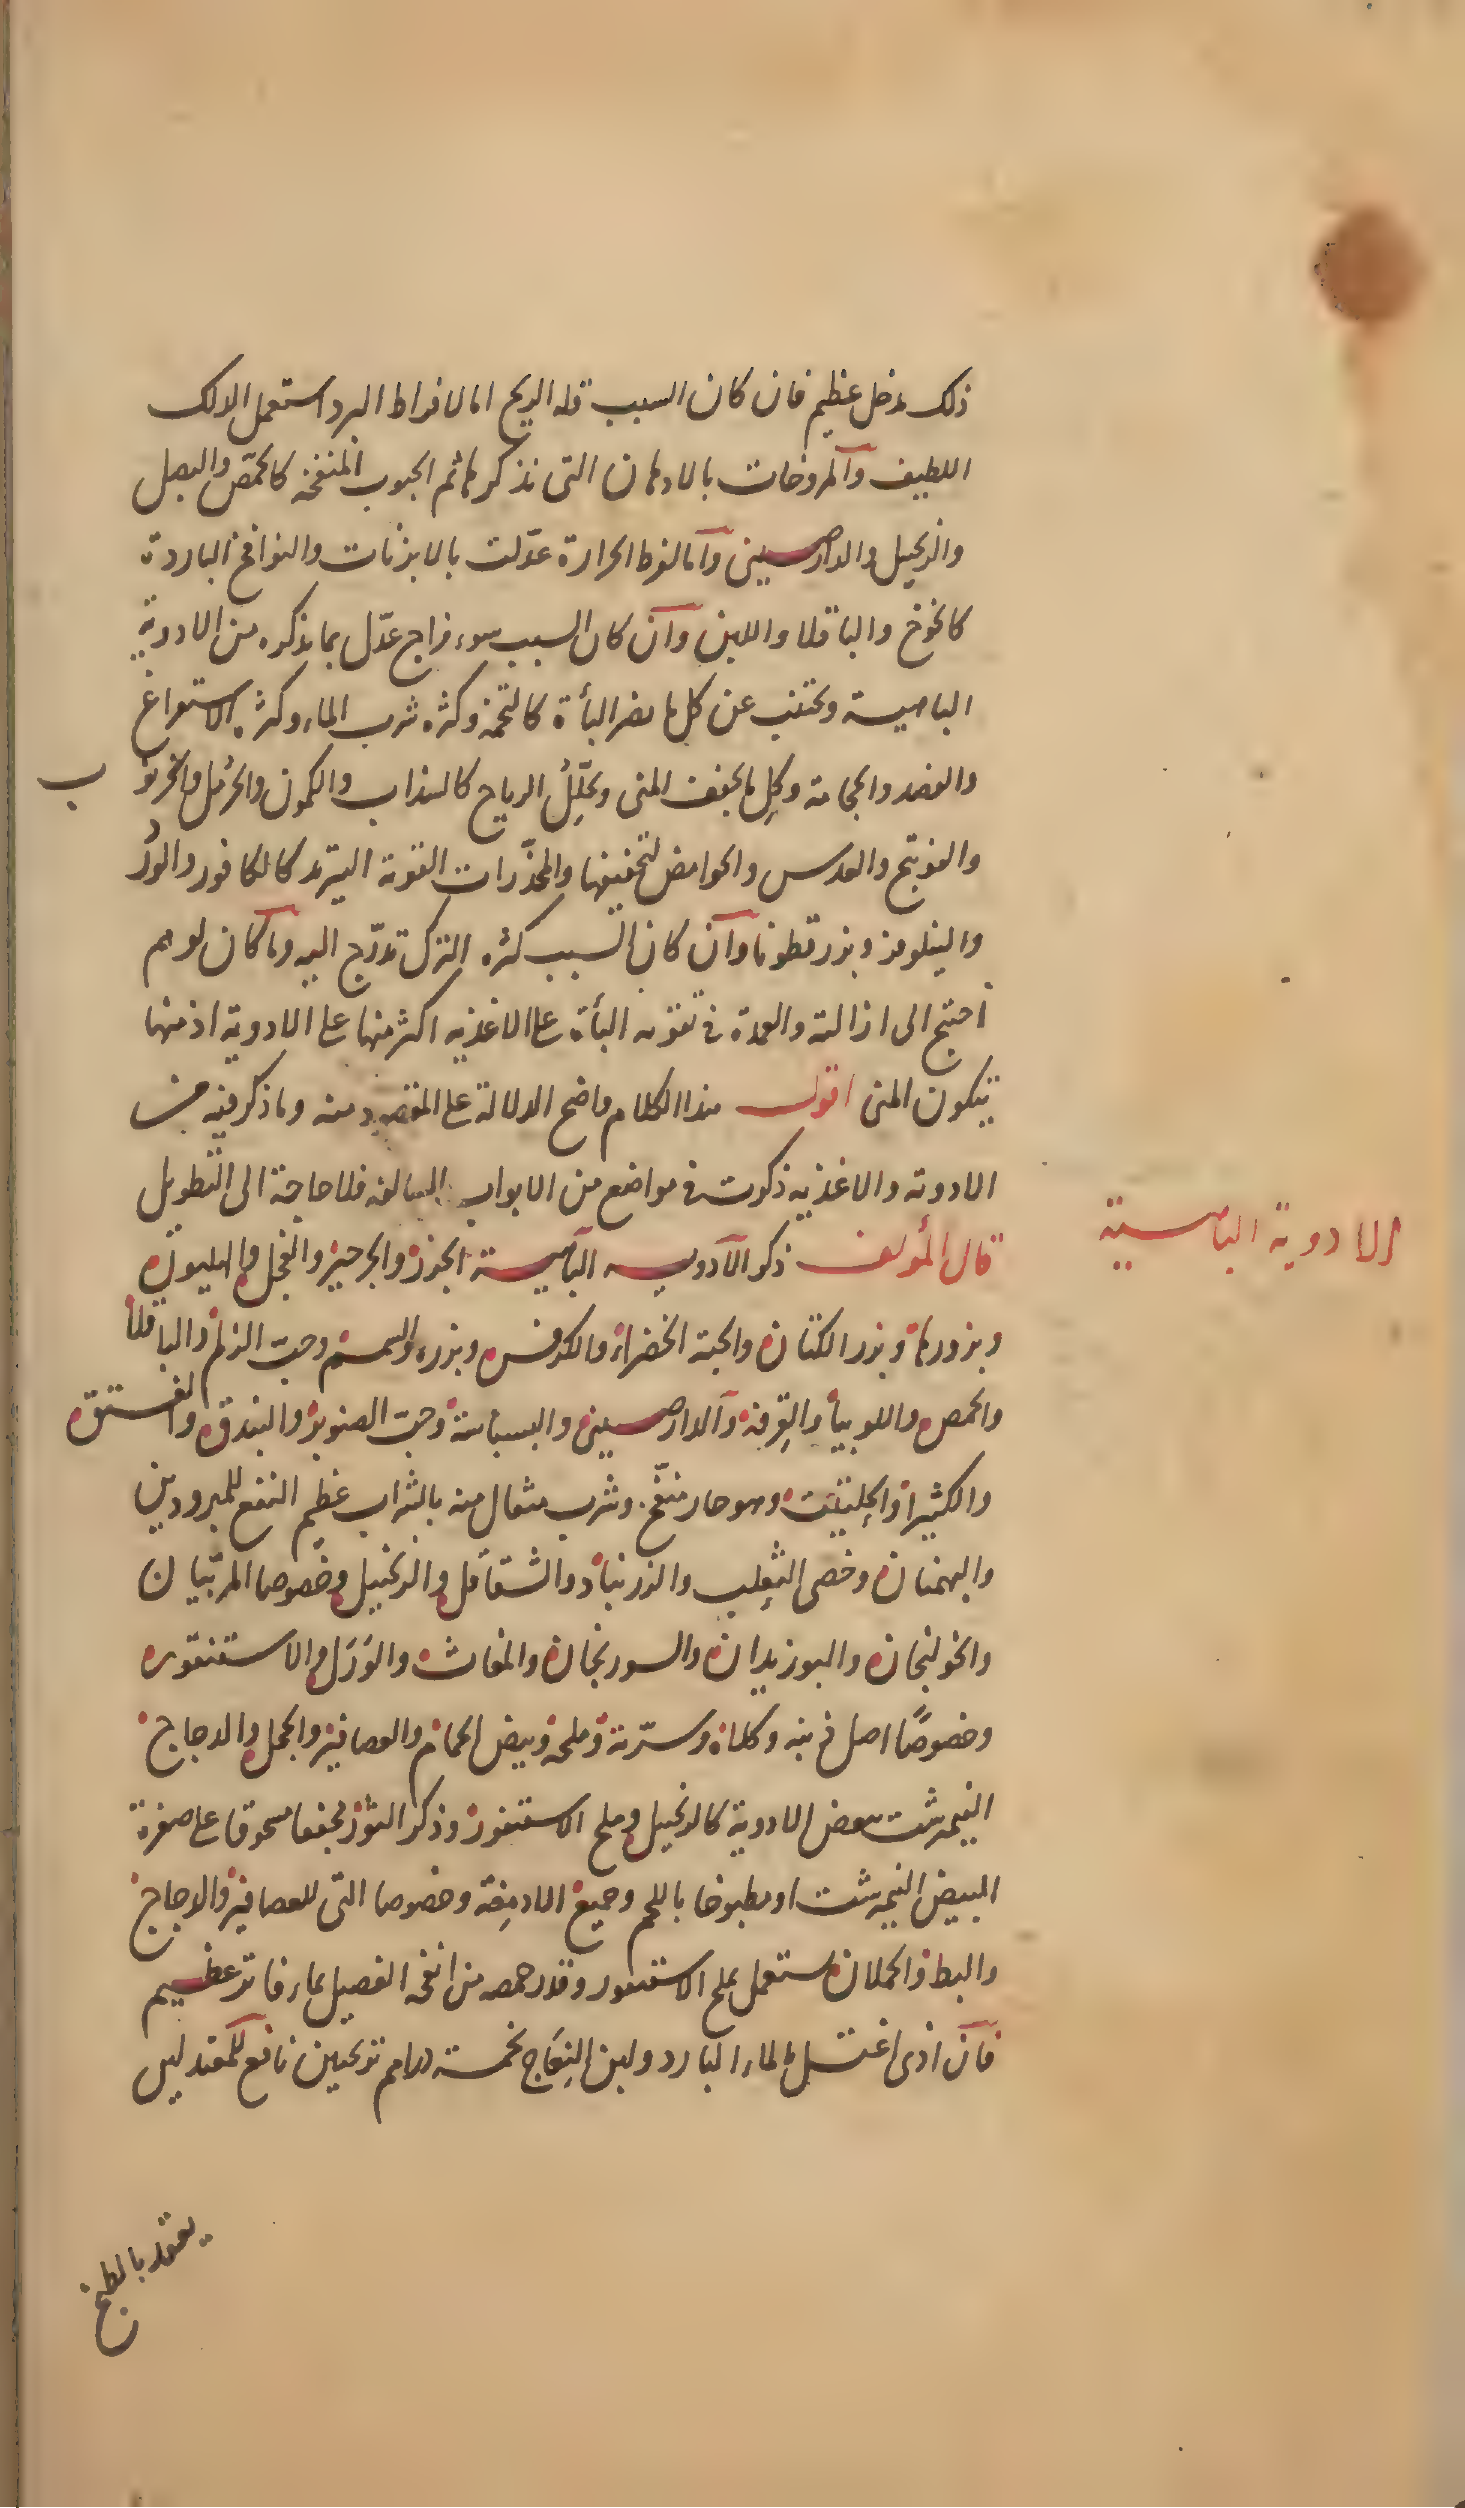 ذلك مدخل عظيم فان كان السبب قلة الريح اما لافراط البرد استعمل الدلك
اللطيف وآلمروخات بالادهان التى نذكرها ثم الحبوب المنفخة كالحمّص والبصل
والزنجبيل والدارصينى وآما لفرط الحرارة عدّلت بالابزنات والنوافخ الباردة
كالخوخ والباقلا واللبن وآن كان السبب سوء مزاج عدّل بما يذكره من الادوية
الباهية ويجتنب عن كل ما يضر البأة كالتخمة وكثرة شرب الماء وكثرة الاستفراغ
والفصد والحجامة وكل ما يجفف المنى ويحلّل الرياح كالسذاب والكمون والحرمل والخرنو
ب
والفوتنج والعدس والحوامض لتجفيفها والمخدّرات القوية التبريد كالكافور والورد
والنيلوفر وبزر قطونا وآن كان السبب كثرة الترك تدرّج اليه وما كان لوهم
احتيج الى ازالته والعمدة فى تقوية البأة على الاغذية اكثر منها على الادوية اذ منها
يتكون المنى اقول هذا الكلام واضح الدلالة على المقصود منه وما ذكر فيه من
الادوية والاغذية ذكرت فى مواضع من الابواب السالفة فلا حاجة الى التطويل
قال المؤلف ذكر الآدوية البآهية الجوز والجرجير والفجل والهليون
الادوية الباهية
وبزورها وبزر الكتان والحبة الخضراء والكرفس وبزره والسمسم وحب الزلم والباقلا
والحمص واللوبيأ والقرفة وآلدارصينى والبسباسة وحب الصنوبر والبندق والفستق
والكثيرا والحلتيت وهو حار منفّخ وشرب مثقال منه بالشراب عظيم النفع للمبرودين
والبهمنان وخصى الثعلب والزرنباد والشقاقل والزنجبيل وخصوصا المربّيان
والخولنجان والبوزيدان والسورنجان والمغاث والورل والاستنقور
وخصوصًا اصل ذنبه وكلاه وسرّته وملحه وبيض الحمام والعصافير والحجل والدجاج
النيمرشت ببعض الادوية كالزنجبيل وملح الاستنقور وذكر الثور مجففا مسحوقا على صفرة
البيض النيمرشت او مطبوخا باللحم وجميع الادمغة وخصوصا التى للعصافير والدجاج
والبط والحملان يستعمل بملح الاستنقور وقدر حمصة من انفحة الفصيل بماء فاتر عظيم
فآن اذى اغتسل بالماء البارد ولبن النعاج بخمسة دراهم ترنجبين نافع للمعتدلين
يعقد بالطبخ